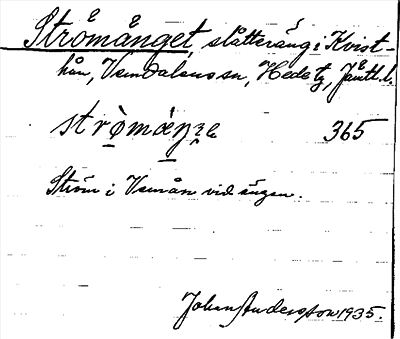 Strömånget, slåtteräng i Kvist-
hån, Vemdalens sn, Heds tg, Jämtl. l.
365
Ström i Vemån vid ängen.
Johan Andersson 1935.